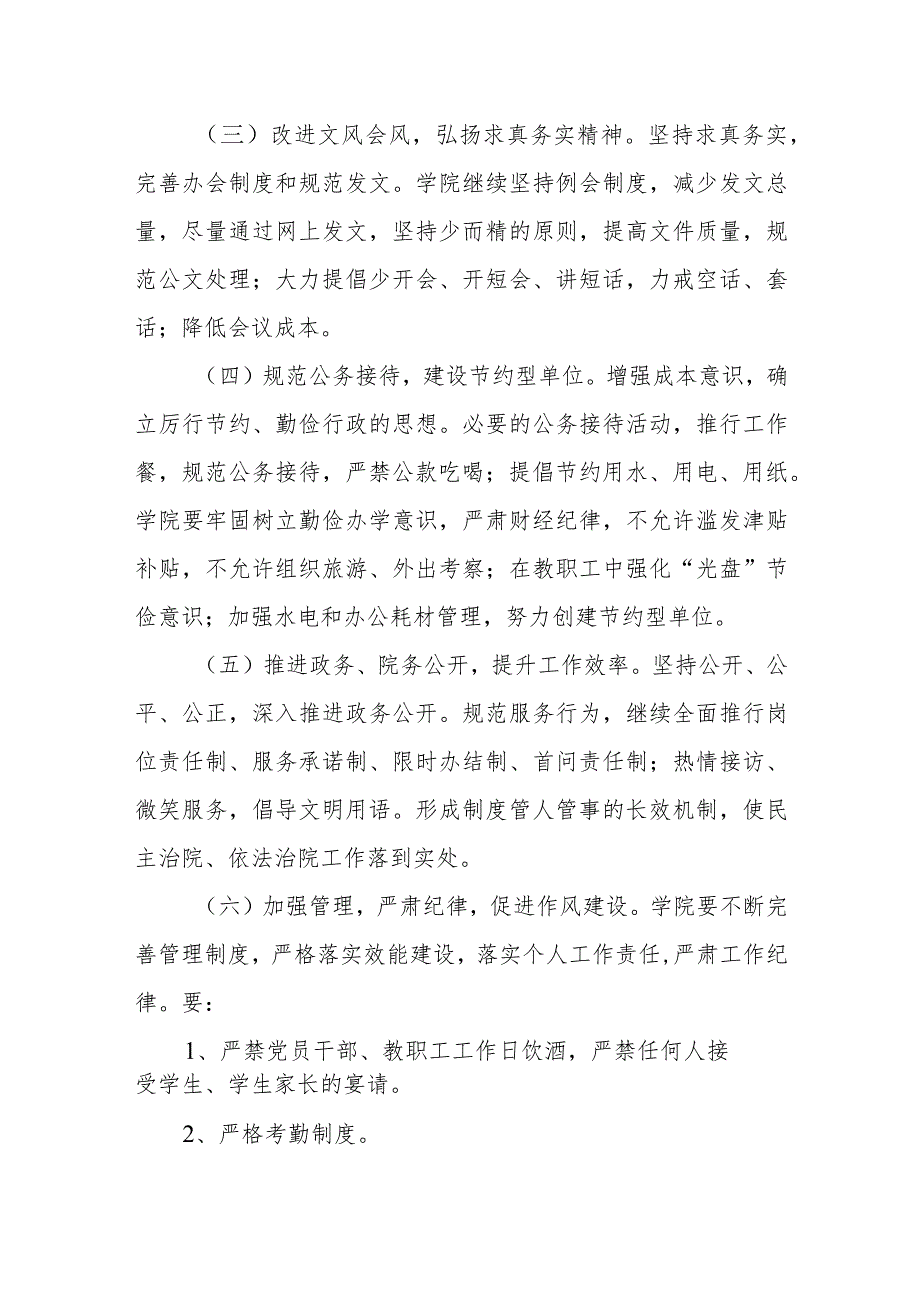 （三）改进文风会风，弘扬求真务实精神。坚持求真务实，
完善办会制度和规范发文。学院继续坚持例会制度，减少发文总
量，尽量通过网上发文，坚持少而精的原则，提高文件质量，规
范公文处理；大力提倡少开会、开短会、讲短话，力戒空话、套
话；降低会议成本。
（四）规范公务接待，建设节约型单位。增强成本意识，确
立厉行节约、勤俭行政的思想。必要的公务接待活动，推行工作
餐，规范公务接待，严禁公款吃喝；提倡节约用水、用电、用纸。
学院要牢固树立勤俭办学意识，严肃财经纪律，不允许滥发津贴
补贴，不允许组织旅游、外出考察；在教职工中强化“光盘”节
俭意识；加强水电和办公耗材管理，努力创建节约型单位。
（五）推进政务、院务公开，提升工作效率。坚持公开、公
平、公正，深入推进政务公开。规范服务行为，继续全面推行岗
位责任制、服务承诺制、限时办结制、首问责任制；热情接访、
微笑服务，倡导文明用语。形成制度管人管事的长效机制，使民
主治院、依法治院工作落到实处。
（六）加强管理，严肃纪律，促进作风建设。学院要不断完
善管理制度，严格落实效能建设，落实个人工作责任,严肃工作纪
律。要：
1、严禁党员干部、教职工工作日饮酒，严禁任何人接
受学生、学生家长的宴请。
2、严格考勤制度。